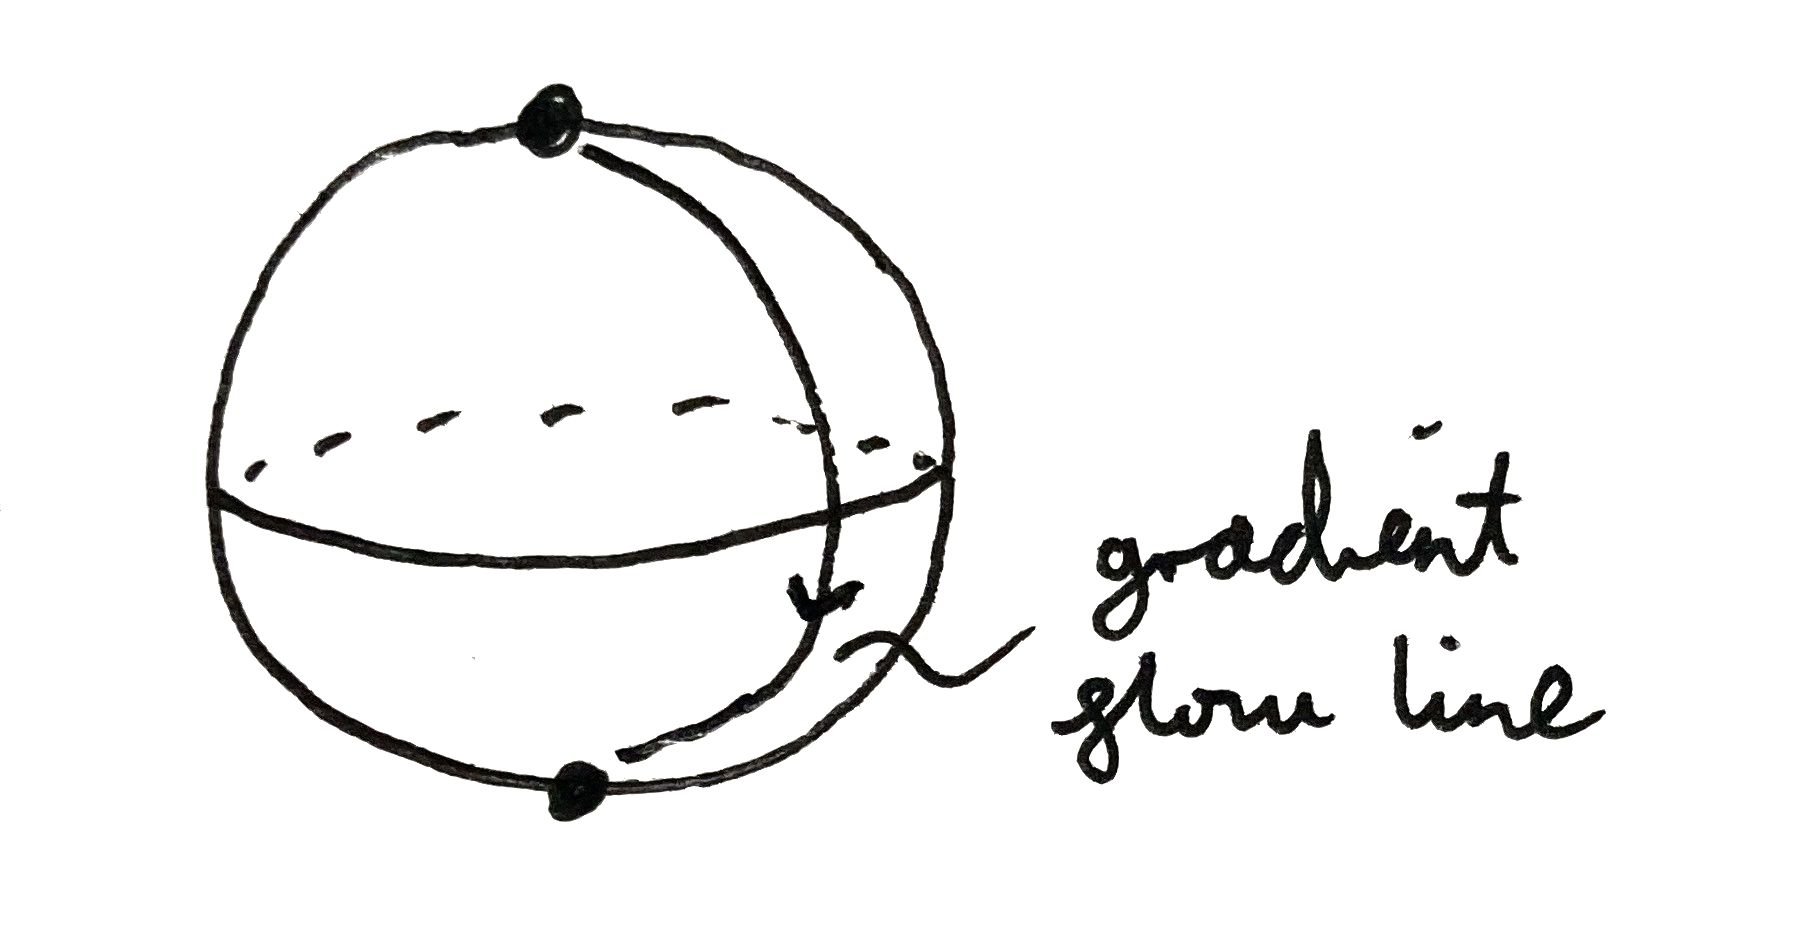 gradient
flow line